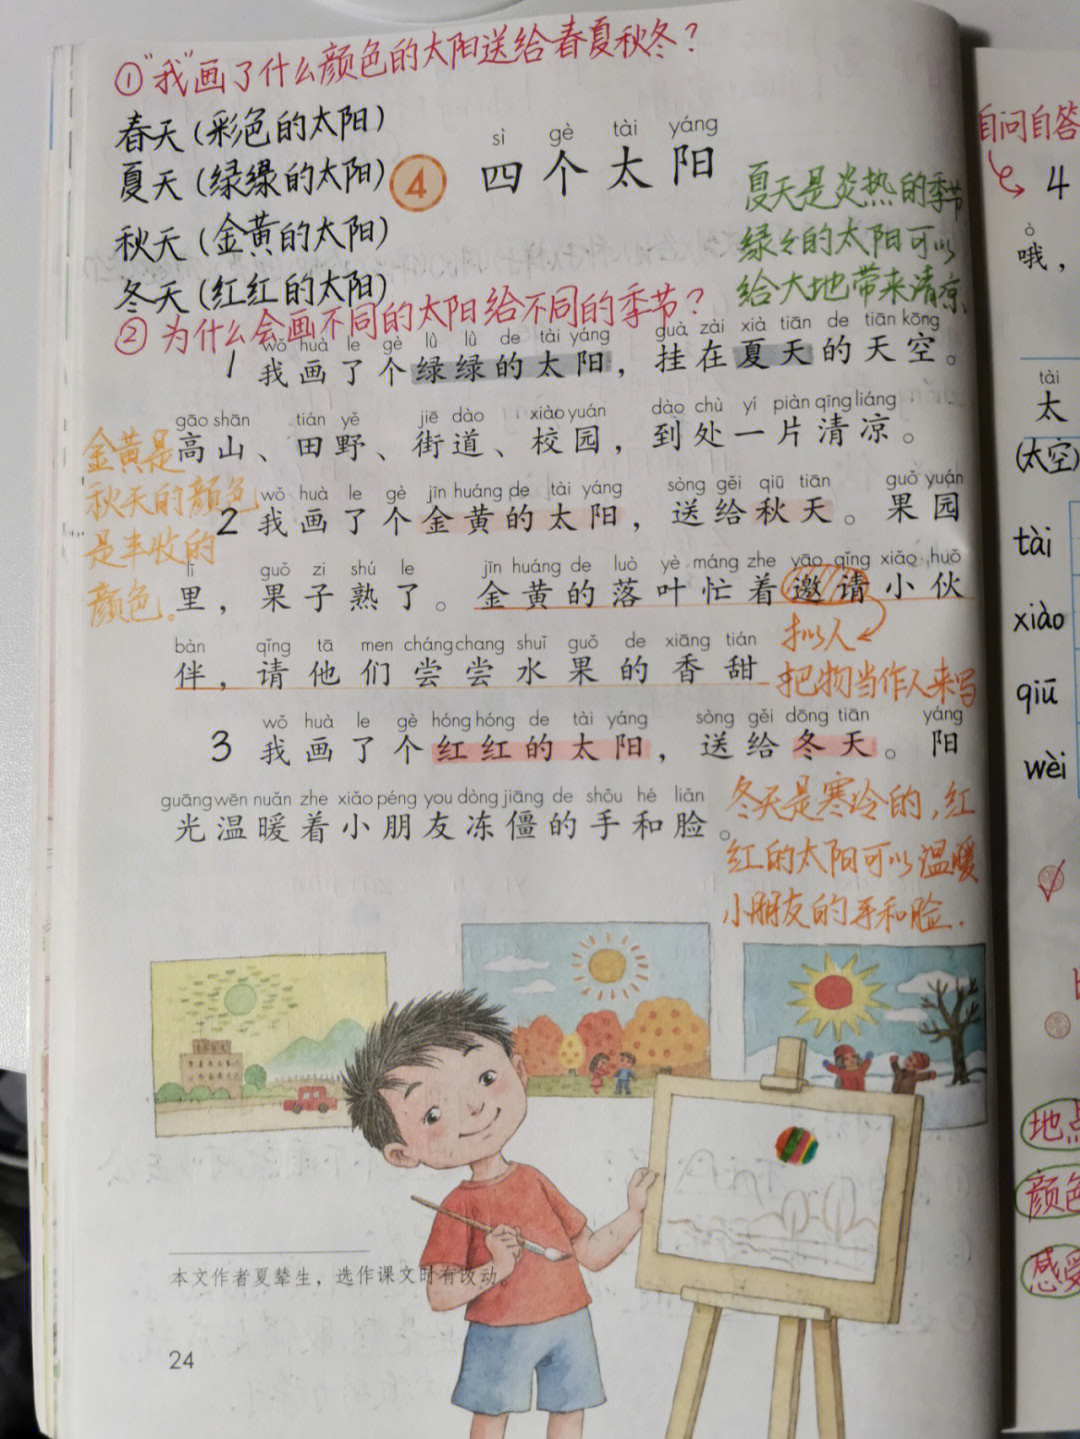 ①“我”画了什么颜色的太阳送给春夏秋冬？
春天(彩色的太阳)
夏天(绿绿的太阳)
秋天(金黄的太阳)
冬天(红红的太阳)
sì gè tài yáng
4 四个太阳
夏天是炎热的季节
绿々的太阳可以
给大地带来清凉
②为什么会画不同的太阳给不同的季节？
wǒ huà le gè lǜ lǜ de tài yáng guà zài xià tiān de tiān kōng
1 我画了个绿绿的太阳，挂在夏天的天空。
gāo shān tián yě jiē dào xiào yuán dào chù yí piàn qīng liáng
高山、田野、街道、校园，到处一片清凉。
金黄是
秋天的颜色
是丰收的
颜色。
wǒ huà le gè jīn huáng de tài yáng sòng gěi qiū tiān guǒ yuán
2 我画了个金黄的太阳，送给秋天。果园
lǐ guǒ zi shú le jīn huáng de luò yè máng zhe yāo qǐng xiǎo huǒ
里，果子熟了。金黄的落叶忙着邀请小伙
bàn qǐng tā men cháng chang shuǐ guǒ de xiāng tián
伴，请他们尝尝水果的香甜
拟人
把物当作人来写
wǒ huà le gè hóng hóng de tài yáng sòng gěi dōng tiān yáng
3 我画了个红红的太阳，送给冬天。阳
guāng wēn nuǎn zhe xiǎo péng you dòng jiāng de shǒu hé liǎn
光温暖着小朋友冻僵的手和脸。
冬天是寒冷的，红
红的太阳可以温暖
小朋友的手和脸.
本文作者夏辇生，选作课文时有改动。
24
自问自答
4
ò
哦，
tài
太
(太空)
tài
xiào
qiū
wèi
地点
颜色
感受